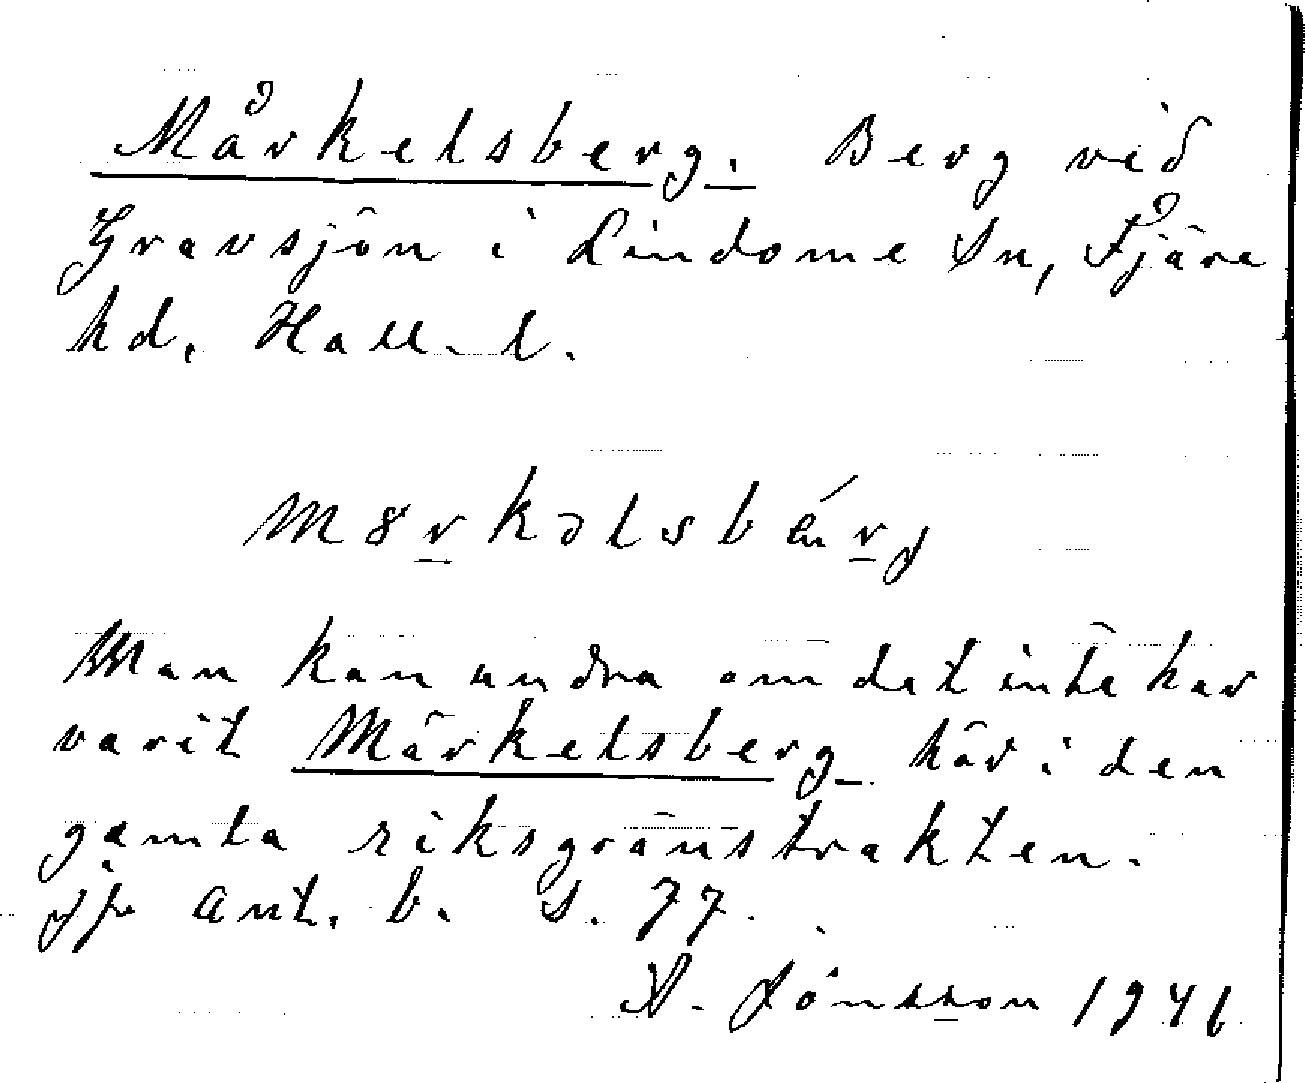 Mårkelsberg. Berg vid
Gravsjön i Lindome Sn, Fjäre
hd, Hall. l.
Man kan undra om det inte har
varit Märkelsberg här i den
gamla riksgränstrakten.
Jfr Ant. b. s. 77.
A. Jönsson 1941